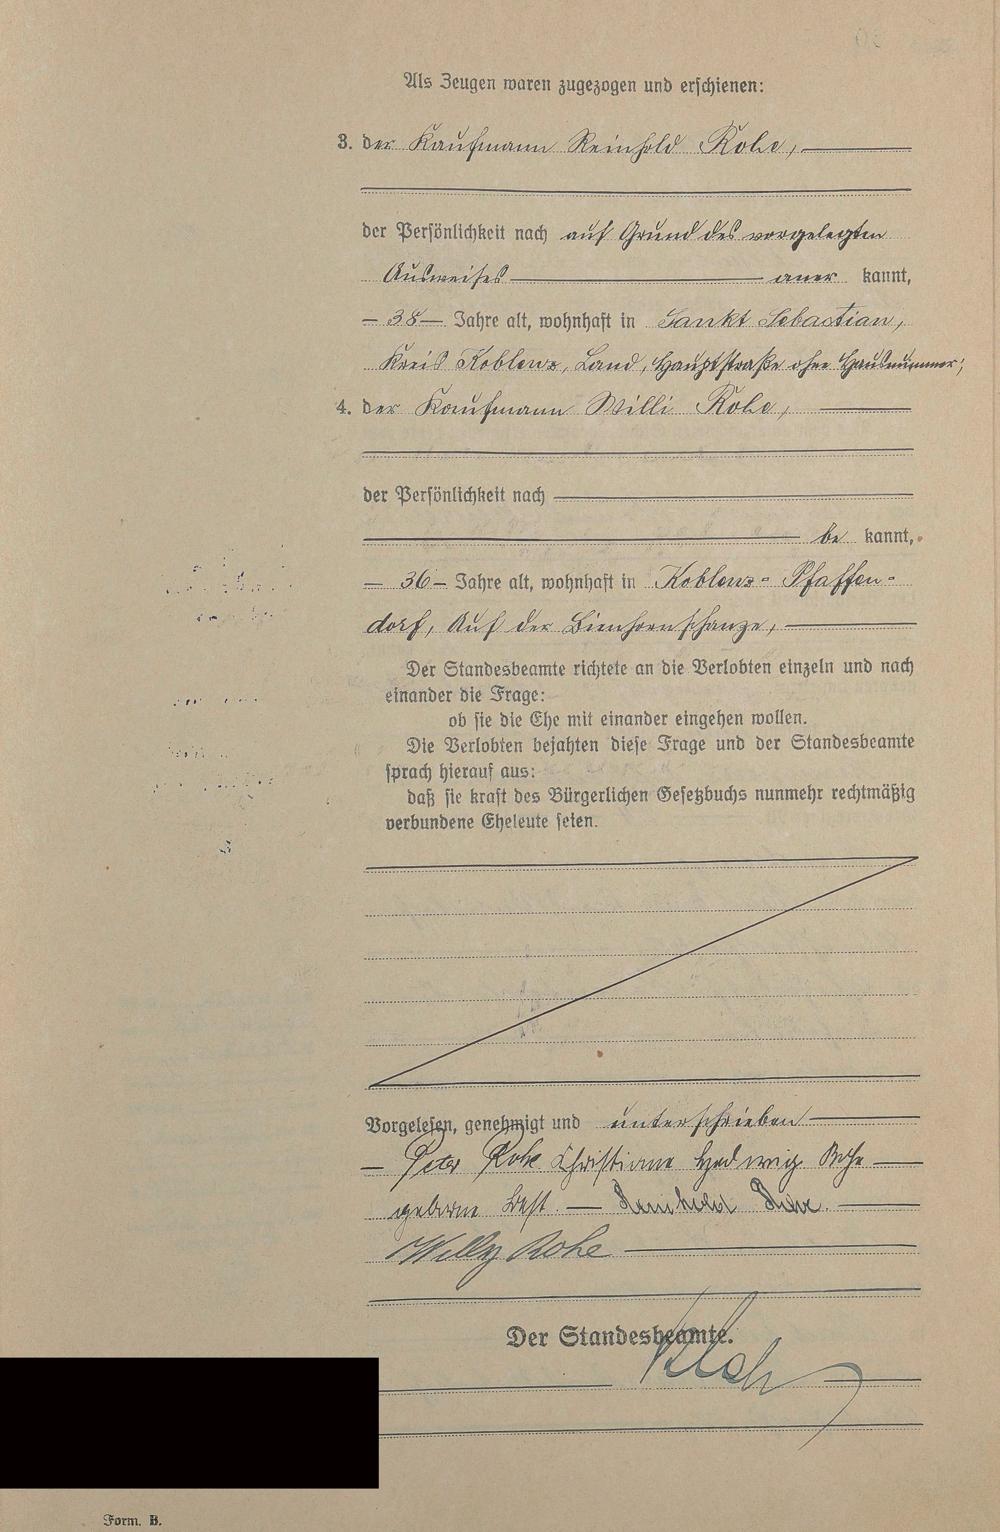 Als Zeugen waren zugezogen und erschienen:
3. der Kaufmann Reinhold Rohe,
der Persönlichkeit nach auf Grund des vorgelegten
Ausweises aner kannt,
– 38 – Jahre alt, wohnhaft in Sankt Sebastian,
Kreis Koblenz, Land, Hauptstraße ohne Hausnummer;
4. der Kaufmann Willi Rohe,
der Persönlichkeit nach
be kannt,
– 36 – Jahre alt, wohnhaft in Koblenz-Pfaffen-
dorf, Auf der Bienhornschanze,
Der Standesbeamte richtete an die Verlobten einzeln und nach
einander die Frage:
ob sie die Ehe mit einander eingehen wollen.
Die Verlobten bejahten diese Frage und der Standesbeamte
sprach hierauf aus:
daß sie kraft des Bürgerlichen Gesetzbuchs nunmehr rechtmäßig
verbundene Eheleute seien.
Vorgelesen, genehmigt und unterschrieben
– Peter Rohe Christiane Hedwig Rohe –
geborne Best. – Reinhold Rohe. –
Willy Rohe
Der Standesbeamte.
Form. B.